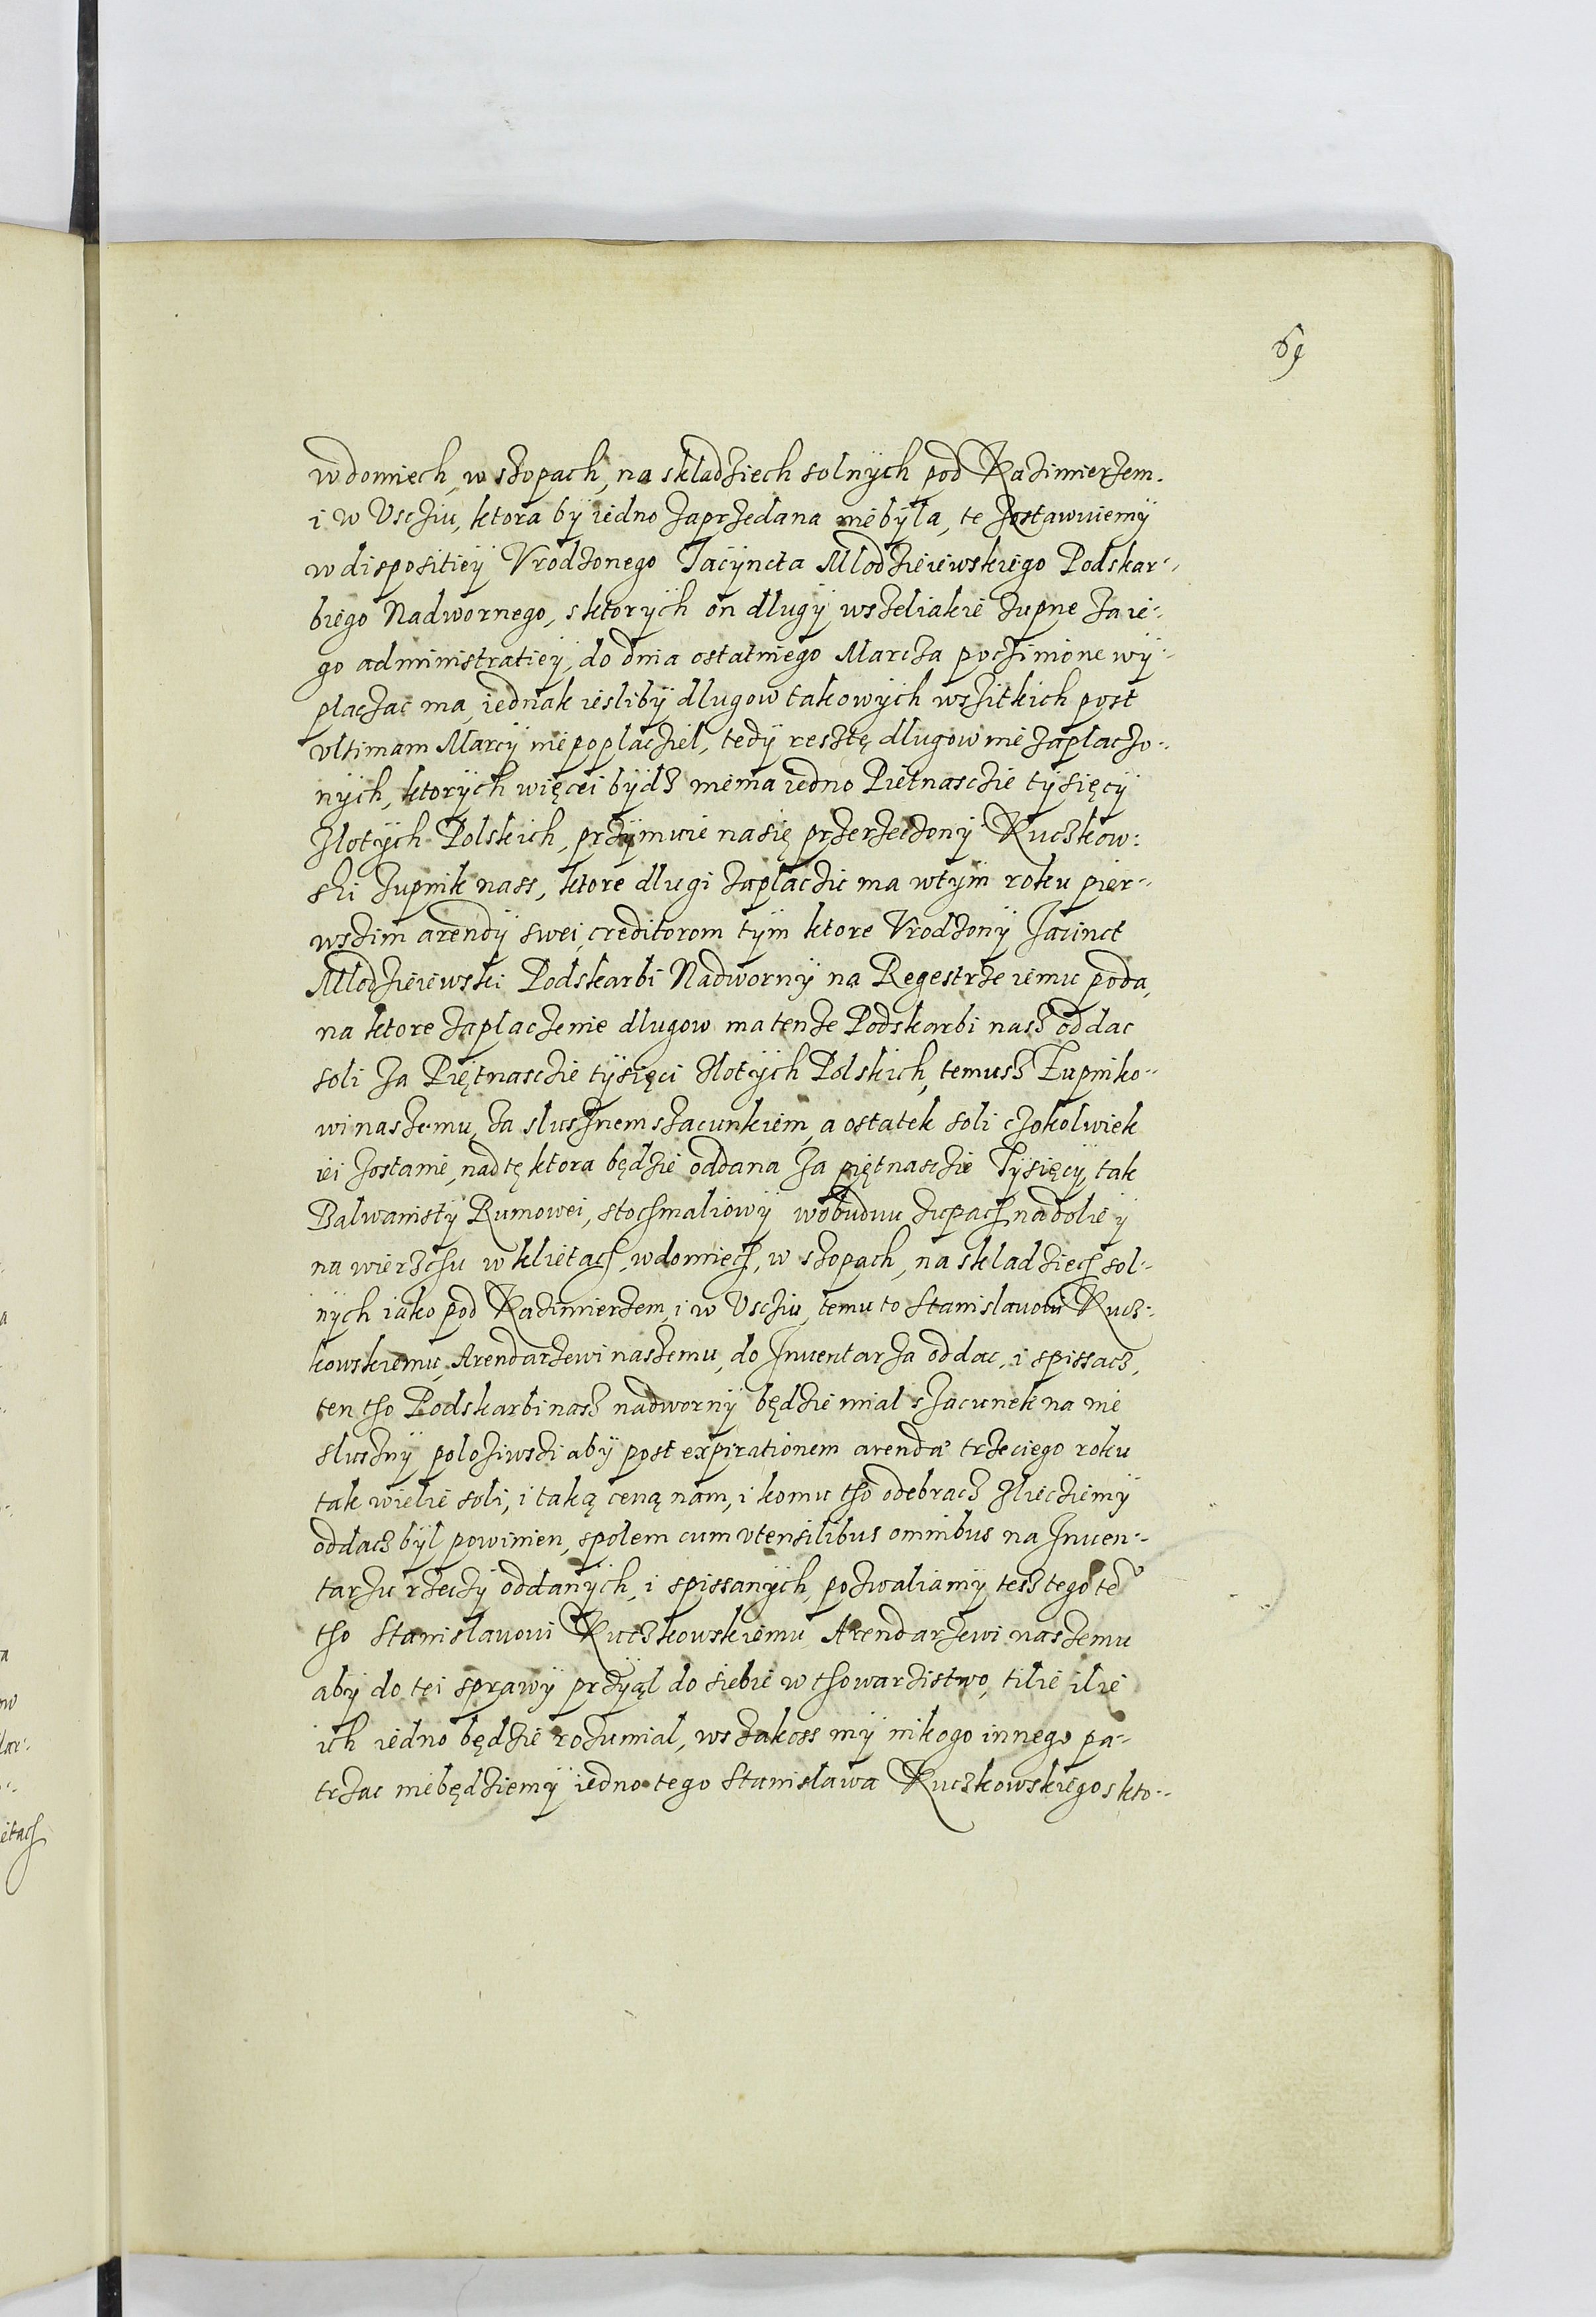 69
w domiech, w szopach, na skladziech solnÿch pod Kazimierzem.
i w Vscziu, ktora bÿ iedno zaprzedana niebÿla, te zostawuiemÿ
w dispositieÿ Vrodzonego Jacÿncta Mlodzieiewskiego Podskar-
biego Nadwornego, s ktorÿch on dlugÿ wszeliakie zupne za ie-
go administratieÿ, do dnia ostatniego Marcza poczinione wÿ-
placzac ma, iednak iesliby dlugow takowÿch wszitkich post
vltimam Marcÿ niepoplacziel, tedÿ resztę dlugow niezaplaczo-
nÿch, ktorÿch więcei bÿdz niema iedno Pietnasczie tÿsięcÿ
Zlotÿch Polskich, przÿmuie na się przerzeczonÿ Kuczkow:
ski zupnik nass, ktore dlugi zaplaczic ma w tÿm roku pier-
wszim arendÿ swei, creditorom tÿm ktore Vrodzonÿ Jacinct
Mlodzieiewski Podskarbi Nadwornÿ na Regestrze iemu poda,
na ktore zaplaczenie dlugow ma tenze Podskarbi nasz oddac
soli za Piętnasczie tÿsięci Zlotÿch Polskich, temusz Zupniko-
wi naszemu, za slusznem szacunkiem, a ostatek soli czokolwiek
iei zostanie, nad tę ktora będzie oddana za piętnasczie Tÿsięcÿ, tak
Balwanistÿ Rumowei, stochmaliowÿ w obudwu zupach na dolie ÿ
na wierzchu w klietach, w domiech, w szopach, na skladziech sol-
nÿch iako pod Kazimierzem, i w Vscziu, temu to Stanislauowi Kucz-
kowskiemu, Arendarzewi naszemu, do Inuentarza oddac, i spissacz,
ten tho Podskarbi nasz nadwornÿ będzie mial szacunek na nie
slusznÿ poloziwszi abÿ post expirationem arendae trzeciego roku
tak wielie soli, i taką ceną nam, i komu tho odebracz zlieciemÿ
oddacz bÿl powinien, spolem cum vtensilibus omnibus na Inuen-
tarzu rzeczÿ oddanÿch, i spissanÿch, pozwaliamÿ tesz tego te
tho Stanislauoui Kuczkowskiemu Arendarzewi naszemu
abÿ do tei sprawÿ przÿiąl do siebie w thowarzistwo, tilie ilie
ich iedno będzie rozumial, wszakoss mÿ nikogo innego pa-
trzac niebędziemÿ iedno tego Stanislawa Kuczkowskiego s kto-